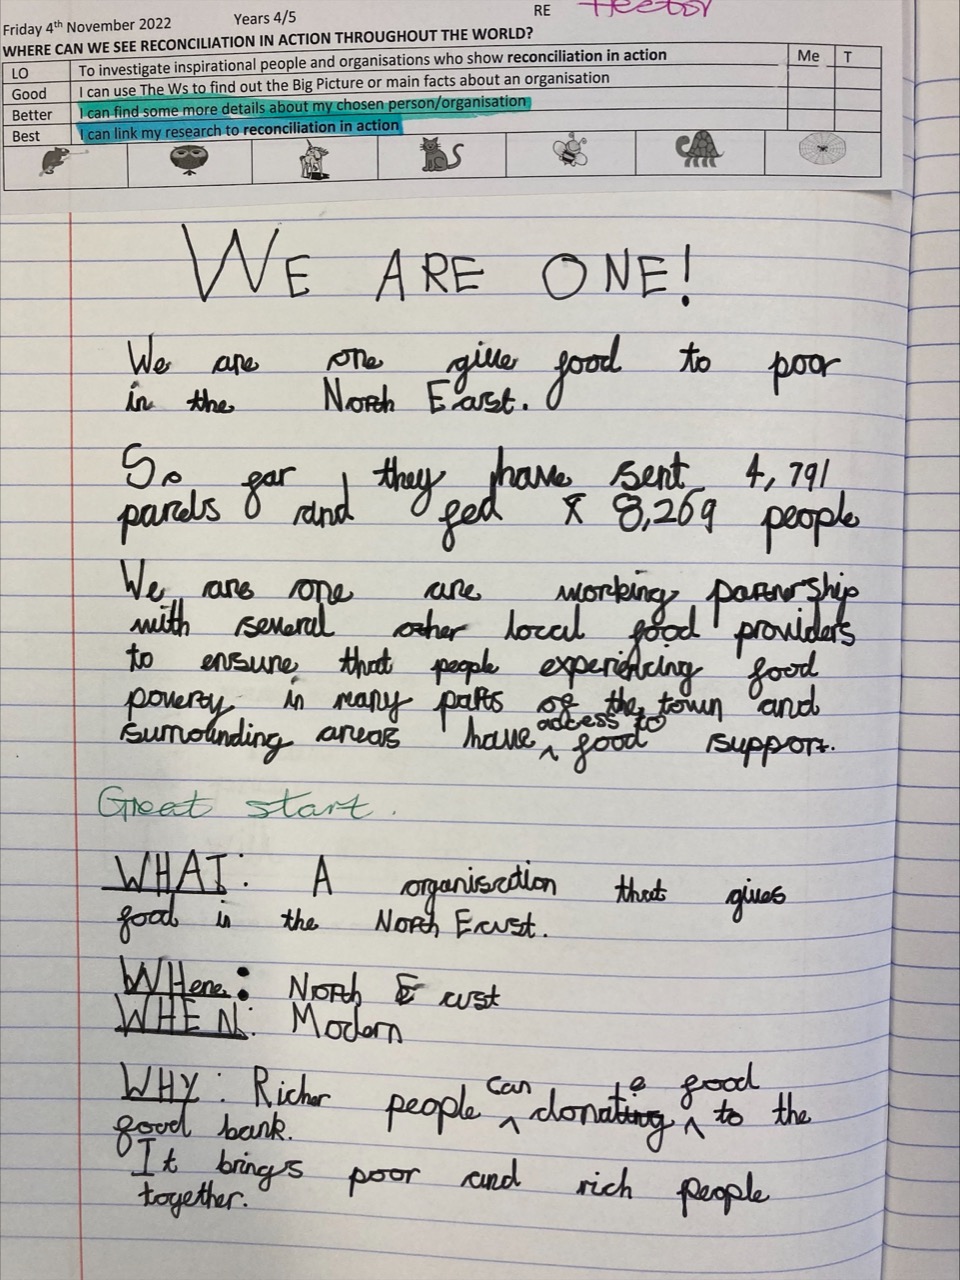 Friday 4th November 2022 Years 4/5 RE Hector
WHERE CAN WE SEE RECONCILIATION IN ACTION THROUGHOUT THE WORLD?
LO To investigate inspirational people and organisations who show reconciliation in action Me T
Good I can use The Ws to find out the Big Picture or main facts about an organisation
Better I can find some more details about my chosen person/organisation
Best I can link my research to reconciliation in action
WE ARE ONE!
We are one give food to poor
in the North East.
So far, they have sent 4,791
parcels and fed 8,269 people
We are one are working partnership
with several other local food providers
to ensure that people experiencing food
poverty in many parts of the town and
surrounding areas have access to food support.
Great start.
WHAT: A organisation that gives
food in the North East.
WHere: North East
WHEN: Modern
WHY: Richer people can donate food to the
food bank.
It brings poor and rich people
together.